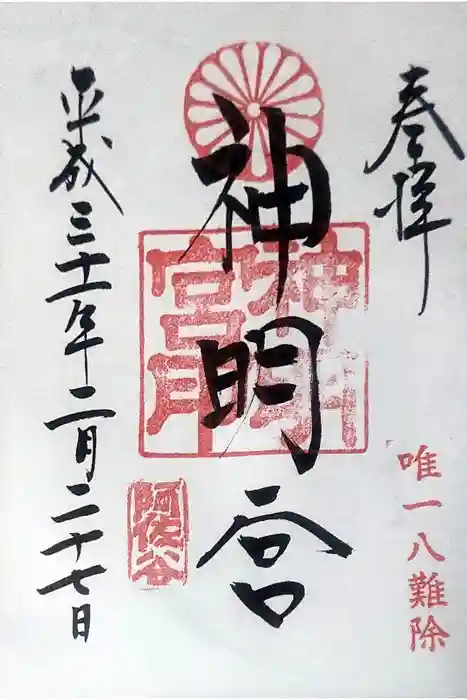 奉拝
唯一八難除
神明宮
神明宮
阿佐ヶ谷
平成三十一年二月二十七日